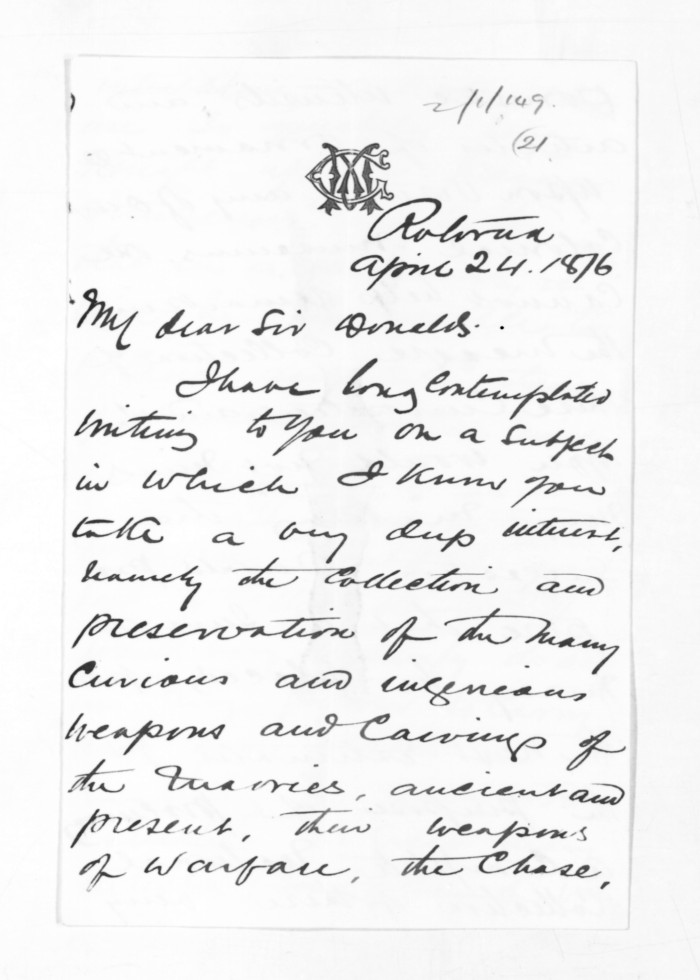 2/1/149.
(21
Rotorua
April 24. 1876
My dear Sir Donald.
I have long Contemplated
writing to you on a subject
in which I know you
take a very deep interest,
namely the Collection and
preservation of the many
Curious and ingenious
weapons and Carvings of
the Maories, ancient and
present, their weapons
of Warfare, the Chase,